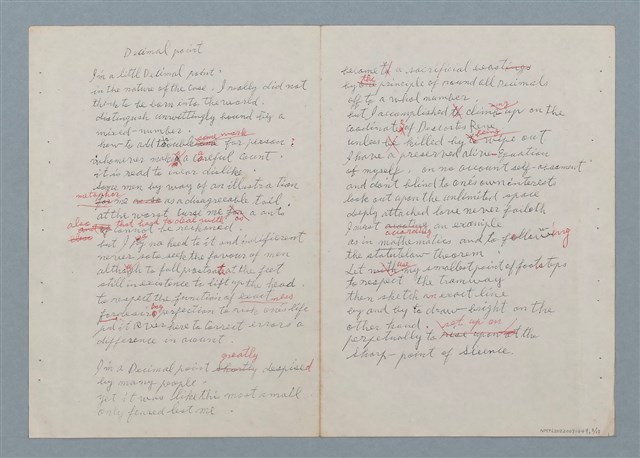 Decimal point
I'm a little Decimal point.
in the nature of the case. I really did not
think to be born into the world.
distinguish unwittingly bound by a
mixed-number.
how to add trouble some work for person;
whenever make a careful count.
it is road to incur dislike,
some men by way of an illustration
metaphor
me as a disagreeable tail.
at the worst curse me a anto
also that hard to deal with
cannot be reckoned.
but I pay no heed to it and indifferent
never seek the favours of men
although to fall prostrate at the feet
still in existence to lift up the head.
to respect the function of exactness
for desire perfection to risk one's life
put it over here to correct errors a
difference in account
greatly
I'm a Decimal point despised
by many people.
yet it was like the most small
only feared lost me.
become a sacrificial
by the principle of round all Decimals
off to a whole number.
but I accomplished climb up on the
coordinate of Descartes Rene
unless killed by being wipe out
I have a preserved alive Equation
of myself. on no account self-assessment
and don't blind to one's own interests
look out upon the unlimited space
deeply attached love never faileth
I must according an example
as in mathematics and to following
the statute law theorem
Let use my smallest point of footsteps
to respect the tramway.
then sketch an exact line
by and by to draw bright on the
other hand.
set up on
perpetually to the
sharp-point of science.